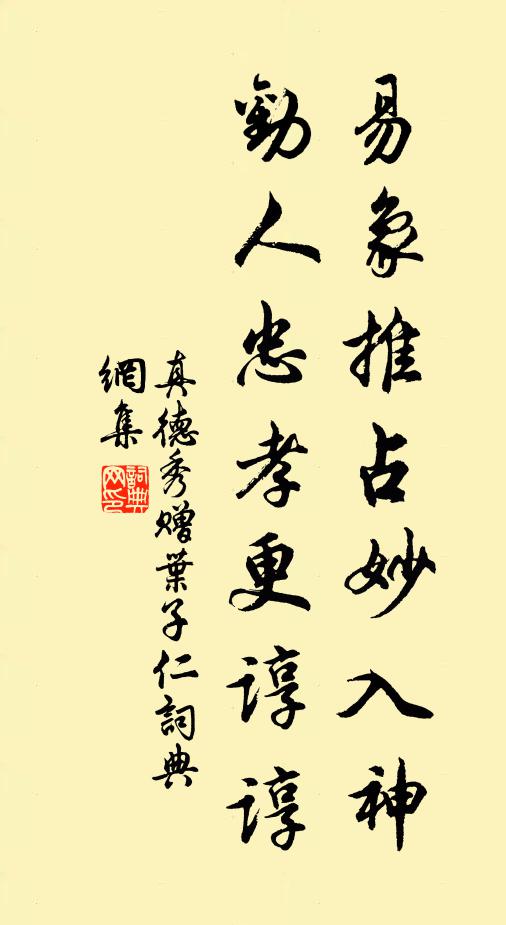 易象推占妙入神
勸人忠孝更諄諄
真德秀贈葉子仁詞典
網集
詞典網印